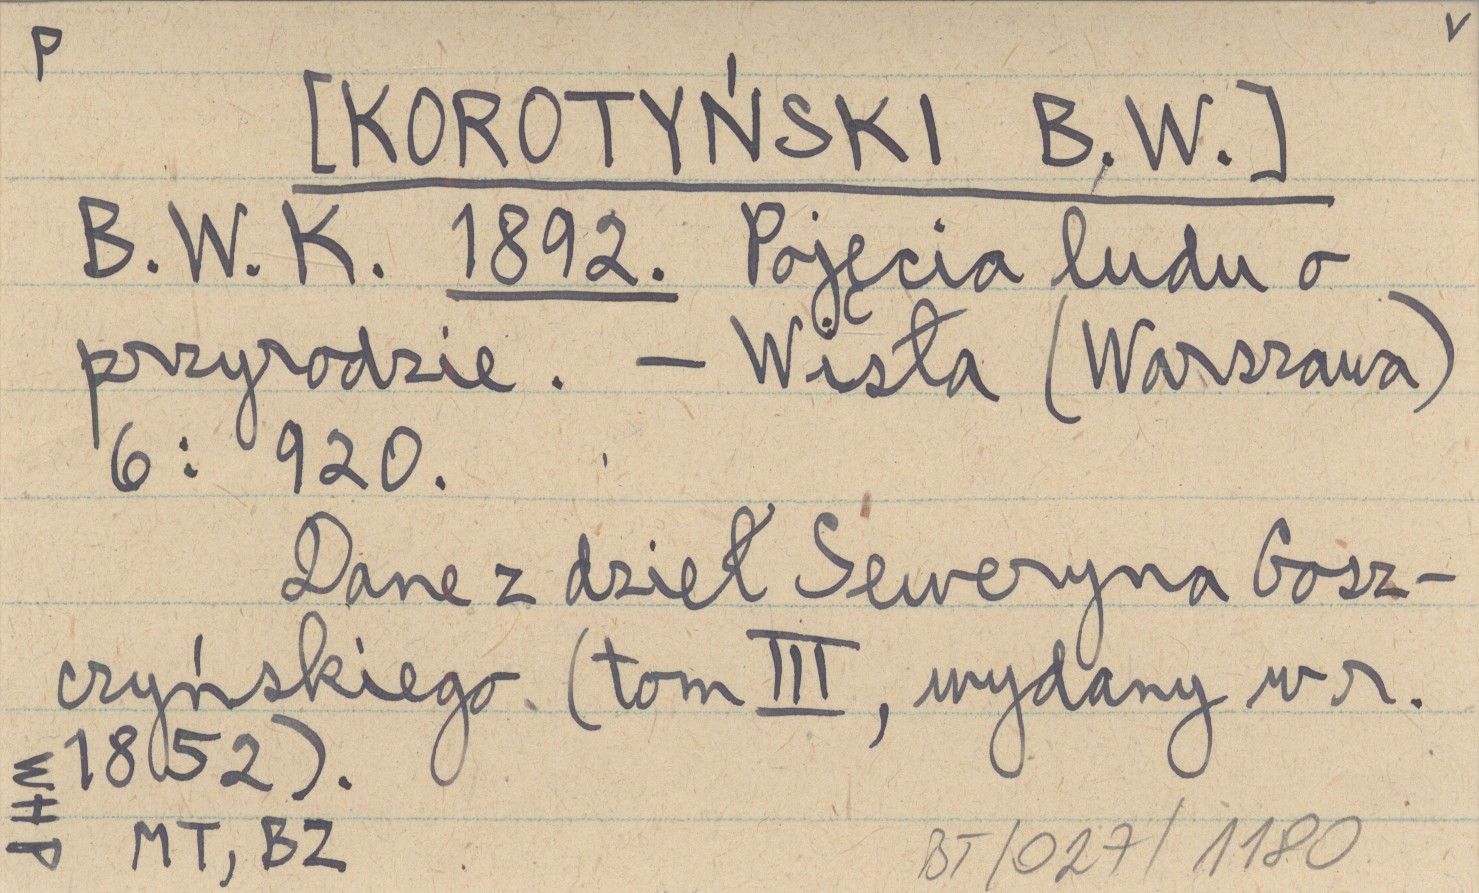 P
v
[KOROTYŃSKI B.W.]
B.W.K. 1892. Pojęcia ludu o
przyrodzie. — Wisła (Warszawa)
6: 920.
Dane z dzieł Seweryna Gosz-
czyńskiego (tom III, wydany w r.
1852).
PHM
MT, BZ
BT/027/1180